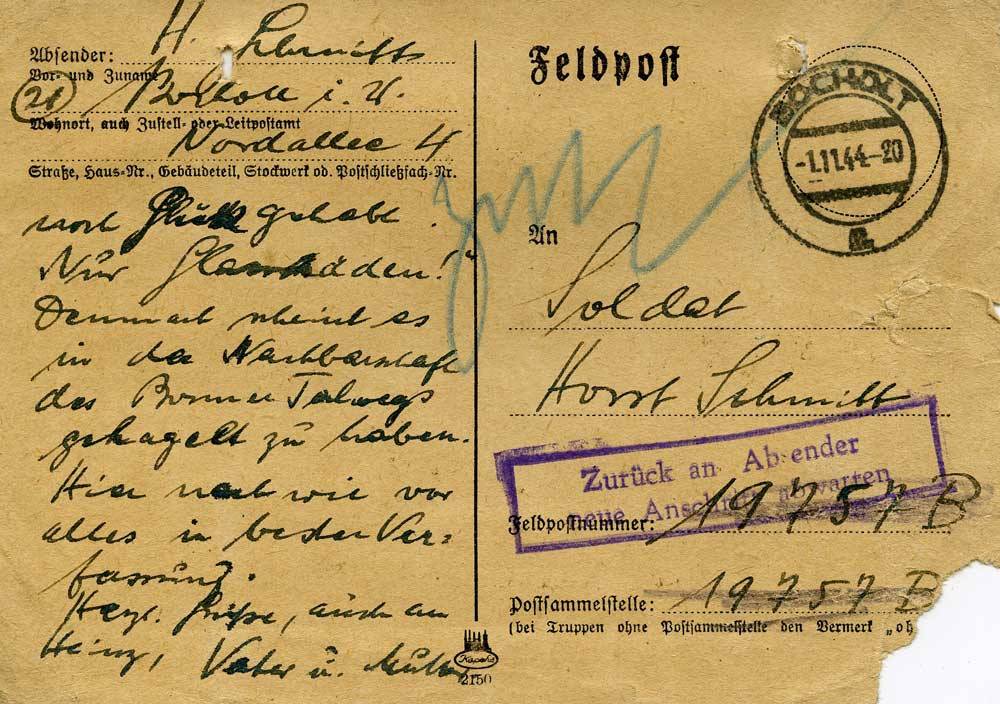 Absender: H. Schmitt
Vor- und Zuname
(21) Bocholt i. W.
Wohnort, auch Zustell- oder Leitpostamt
Nordallee 4
Straße, Haus-Nr., Gebäudeteil, Stockwerk od. Postschließfach-Nr.
noch Glück gehabt.
"Nur Glasschäden!"
Demnach scheint es
in der Nachbarschaft
des Bonner Talwegs
gehagelt zu haben.
Hier nach wie vor
alles in bester Ver=
fassung.
Herzl. Grüße, auch an
Heinz, Vater u. Mutter
2150
Feldpost
BOCHOLT
-1.11.44-20
An
Soldat
Horst Schmitt
Zurück an Absender
neue Anschrift abwarten
Feldpostnummer: 19757 B
Postsammelstelle: 19757 B
(bei Truppen ohne Postsammelstelle den Vermerk „oh